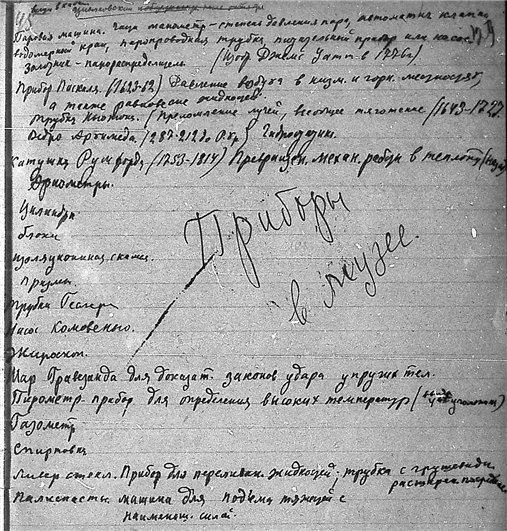 Паровая машина. Чаша манометр - степень давления пара, автоматич. клапан
водомерный кран, паропроводная трубка питательный прибор или насос.
Золотник - парораспределитель (Изобр Джемс Уатт в 1776г)
Прибор Паскаля (1623-62) Давление воздуха в низм. и горн. местностях,
а также равновесие жидкостей
Трубка Ньютона. (Преломление лучей, всеобщее тяготение (1643-1727)
Ведро Архимеда (287-212 до Р.Хр) Гидродинам.
Катушка Румфорда (1753-1814) Превращен. механ. работы в теплоту
Ареометры.
Цилиндры
блоки
Изоляционная скам.
Призмы
Приборы
в музее.
Трубки Гесслера
Насос Комовского.
Жироскоп.
Шар Гравезанда для доказат. законов удара упругих тел.
Пирометр - прибор для определения высоких температур
Газометр
Спиртовка
Ливер стекл. Прибор для переливан. жидкостей, трубка с грушевидн.
расширен.
Полиспасты машина для подъема тяжестей с
наименьш. силой.